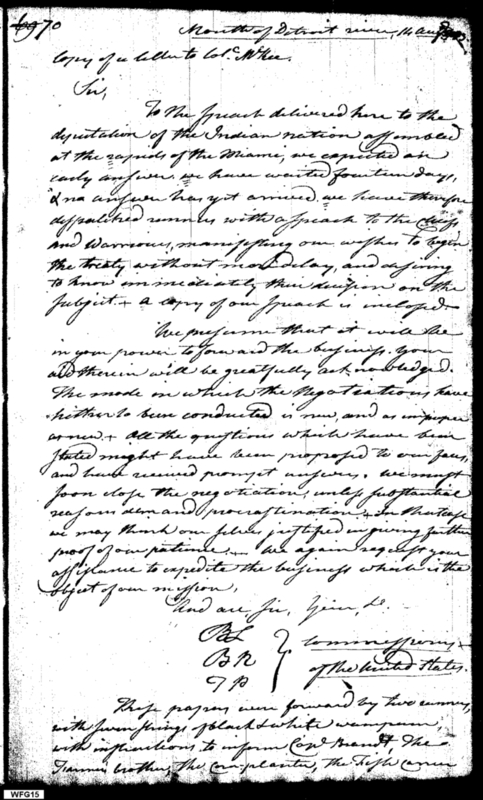 70
Mouth of Detroit river, 14 Augt
Copy of a letter to Colo. McKee.
Sir,
To the speach delivered here to the
deputation of the Indian nation assembled
at the rapids of the Miami, we expected an
early answer. we have waited fourteen days,
& no answer has yet arrived. we have therefore
dispatched runners with a speach to the chiefs
and Warriours, manifesting our wishes to begin
the treaty without more delay, and desiring
to know immediately their decision on the
subject. + a copy of our speach is inclosed.
We presume that it will be
in your power to forward the business. your
aid therein will be greatfully acknowledged.
The mode in which the Negotiations have
hitherto been conducted is new, and as improper
as new + All the questions which have been
stated might have been proposed to our faces,
and have received prompt answers. we must
soon close the negotiations, unless substantial
reasons demand procrastination. in that case
we may think our selves justified in giving further
proof of our patience. We again request your
assistance to expedite the business which is the
object of our mission,
And are Sir, Your, &c.
BL
BR
TP
} Commissioners
of the United States.
These papers were forward by two runners,
with seven strings of black & white wampum,
with instructions to inform Capt Brandt, The
Farmers brother, the cornplanter, the Fish carrier
WFG15